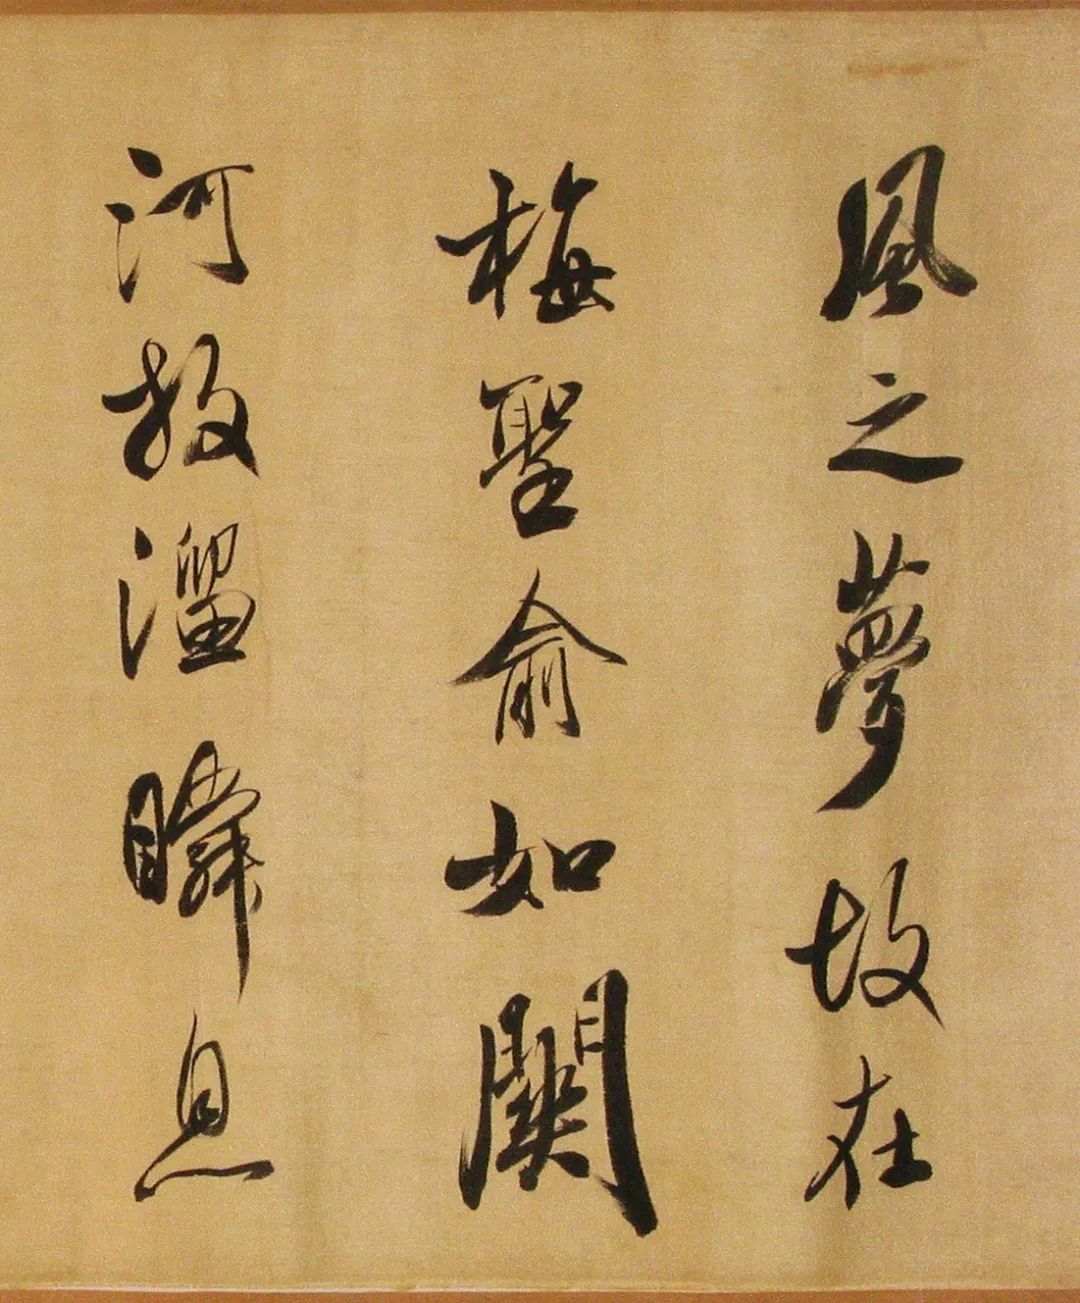 風之夢故在
梅聖俞如關
河放溜瞬息